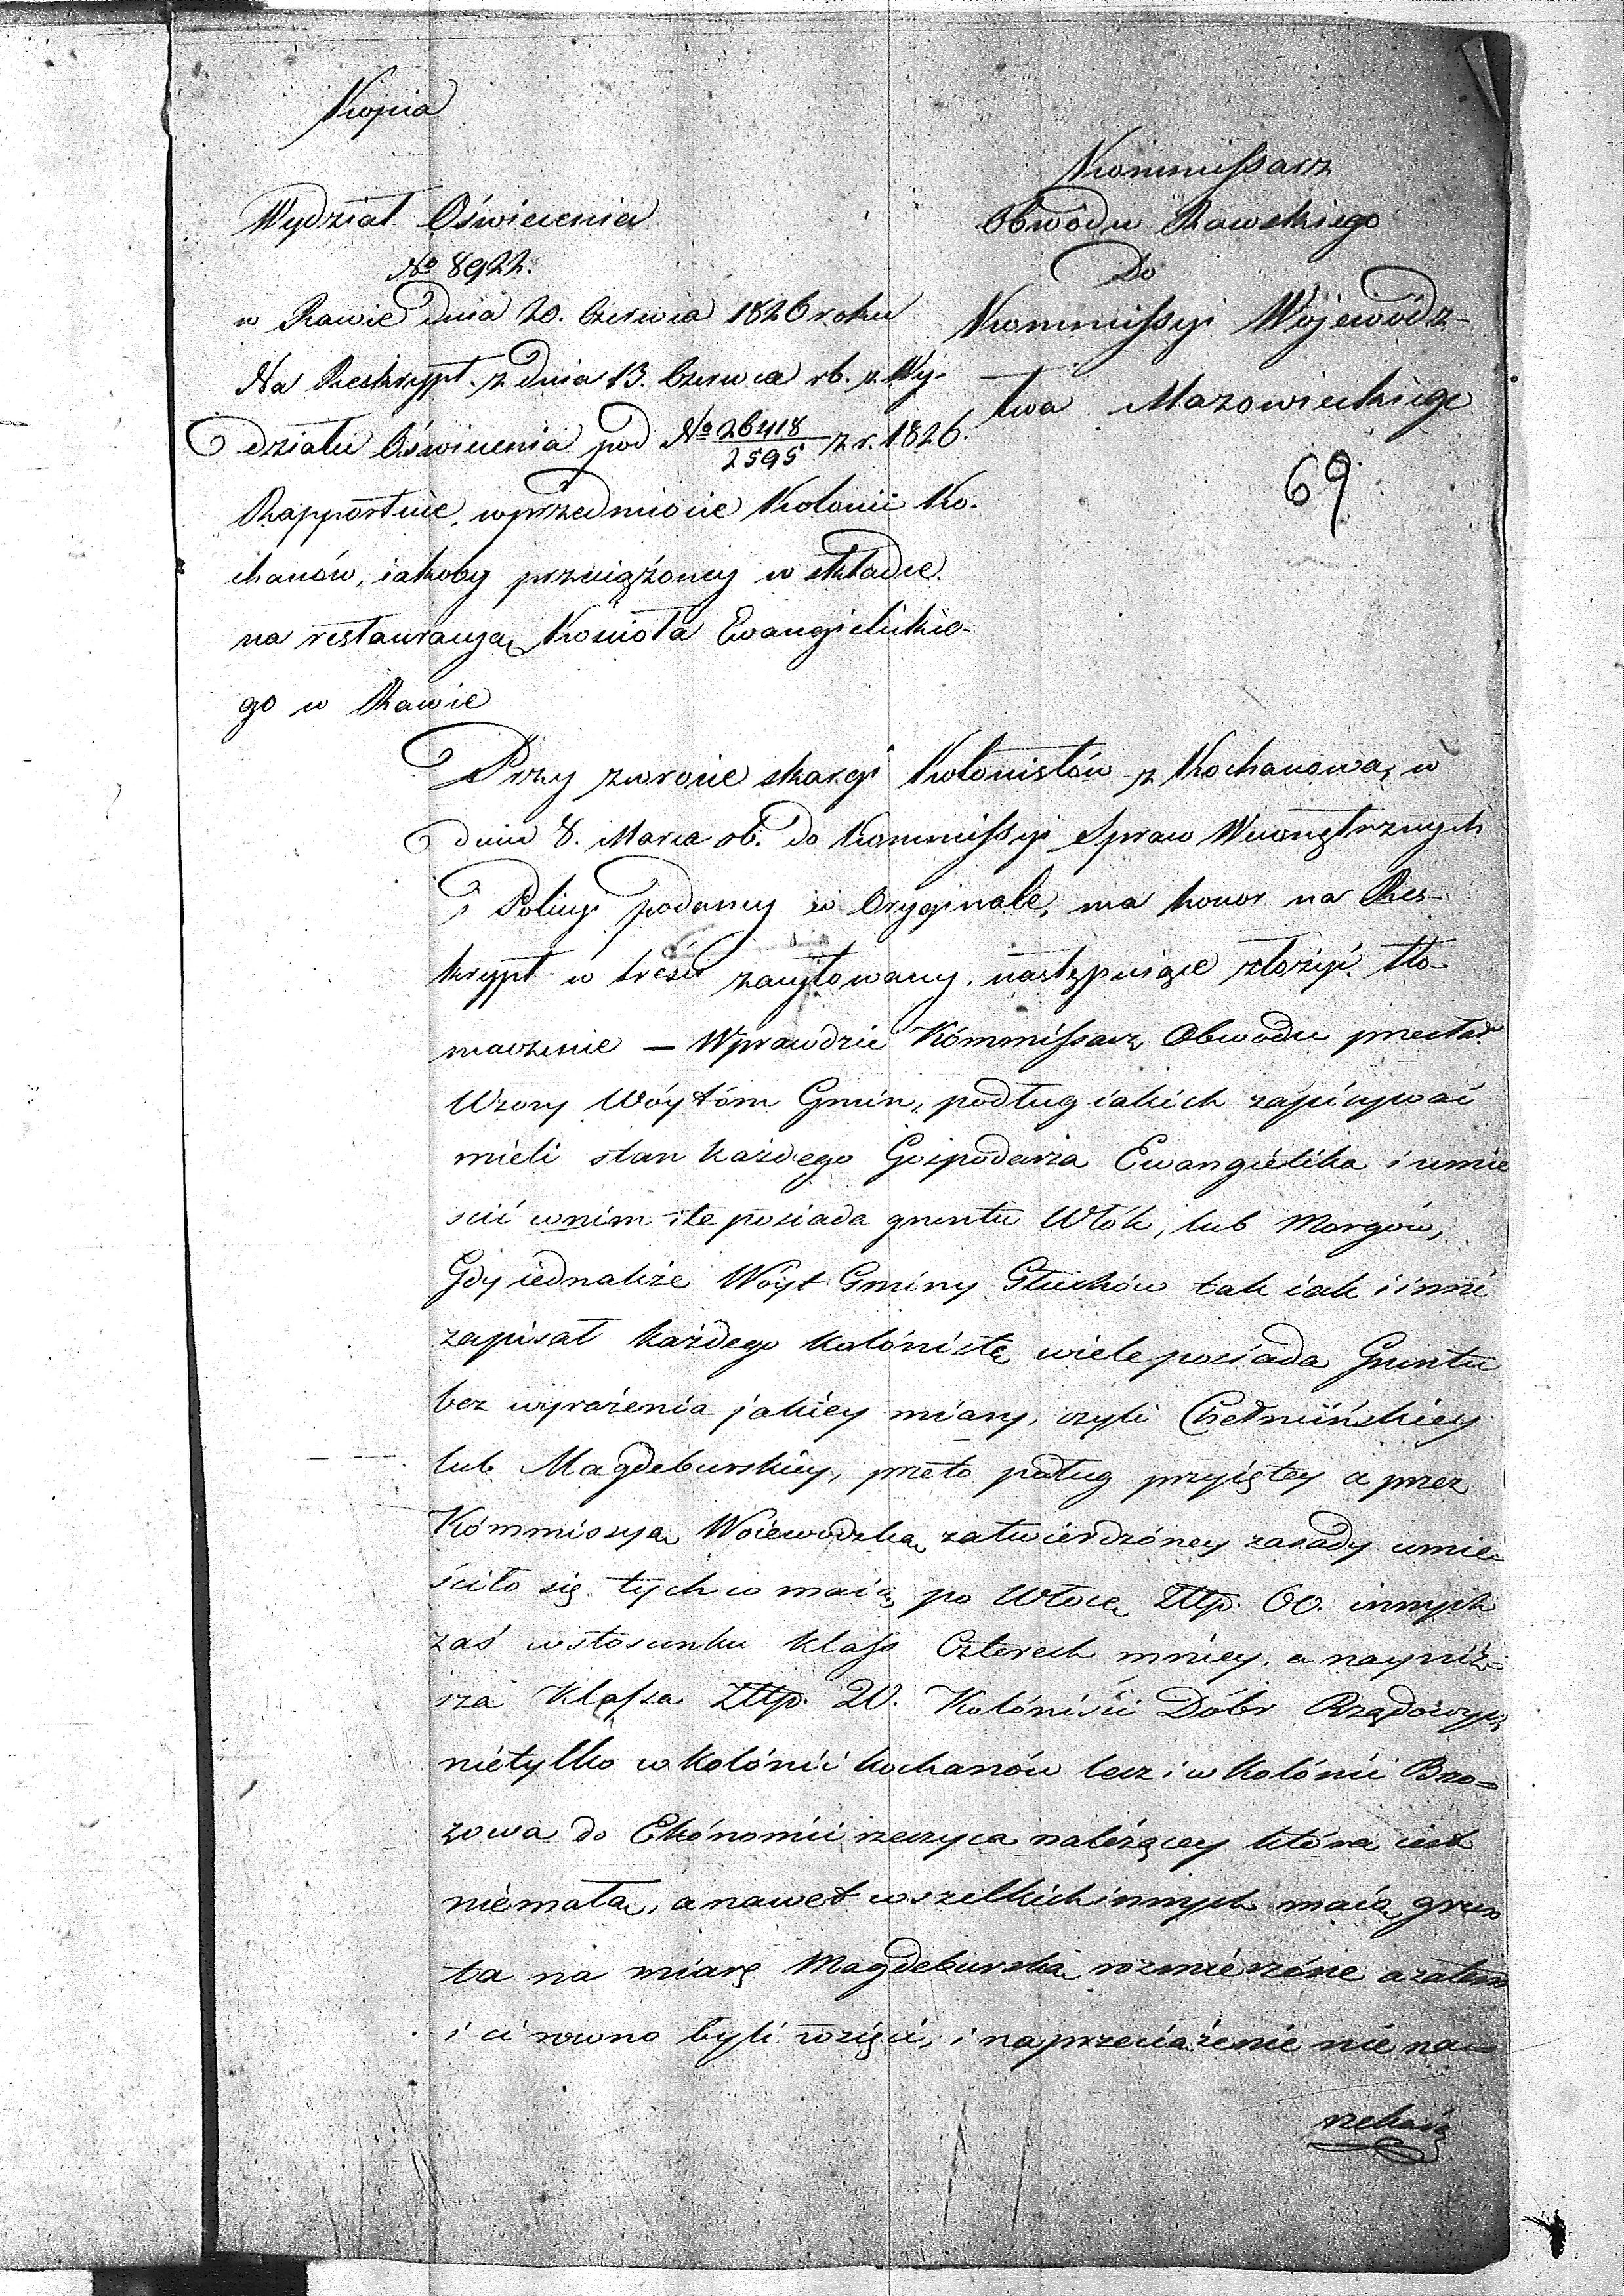 Kopia
Wydział Oświecenia
No 8922.
w Rawie dnia 20. Czerwca 1826 roku
Na Reskrypt z dnia 13. Czerwca rb. z Wy-
działu Oświecenia pod No 26418/2595 z r. 1826.
Rapportuie, wprzedmiocie Kolonii Ko-
chanów, iakoby przeciążoney w składce
na restauracyą Kościoła Ewangielickie-
go w Rawie
Kommissarz
Obwodu Rawskiego
Do
Kommissyi Wojewódz-
twa Mazowieckiego
69
Przy zwrocie skargi Kolonistów z Kochanowa, w
dniu 8. Marca rb. do Kommissyi Spraw Wewnętrznych
i Policyi podaney w Oryginale, ma honor na Res-
krypt w treści zacytowany, następuiące złożyć tło-
maczenie — Wprawdzie Kommissarz Obwodu przesłał
Wzory Wóytóm Gmin, podług iakich zapisywać
mieli stan każdego Gospodarza Ewangielika i umie
scić wnim ile posiada gruntu Włók, lub Morgów,
Gdy iednakże Wóyt Gminy Głuchów tak iak i inni
zapisał każdego kolónistę wiele posiada Gruntu
bez wyrażenia jakiey miary, czyli Chełmińskiey
lub Magdeburskiey, przeto podług przyiętey a przez
Kómmissyą Woiewodzką zatwierdzóney zasady umie-
ściło się tych co maią po Włoce Złtp. 60. innych
zaś wstosunku klass Czterech mniey, a nayniż-
sza Klassa Złtp. 20. Kolóniści Dóbr Rządowych
nietylko w kolónii kochanów lecz i w kolónii Brzo-
zowa do Ekónomii rzeczyca należącey która iest
niemałą, a nawet wszelkich innych maią grun
ta na miarę Magdeburską rozmierzóne a zatem
i ci rowno byli wzięci, i naprzeciążenie nie na-
rzekaią